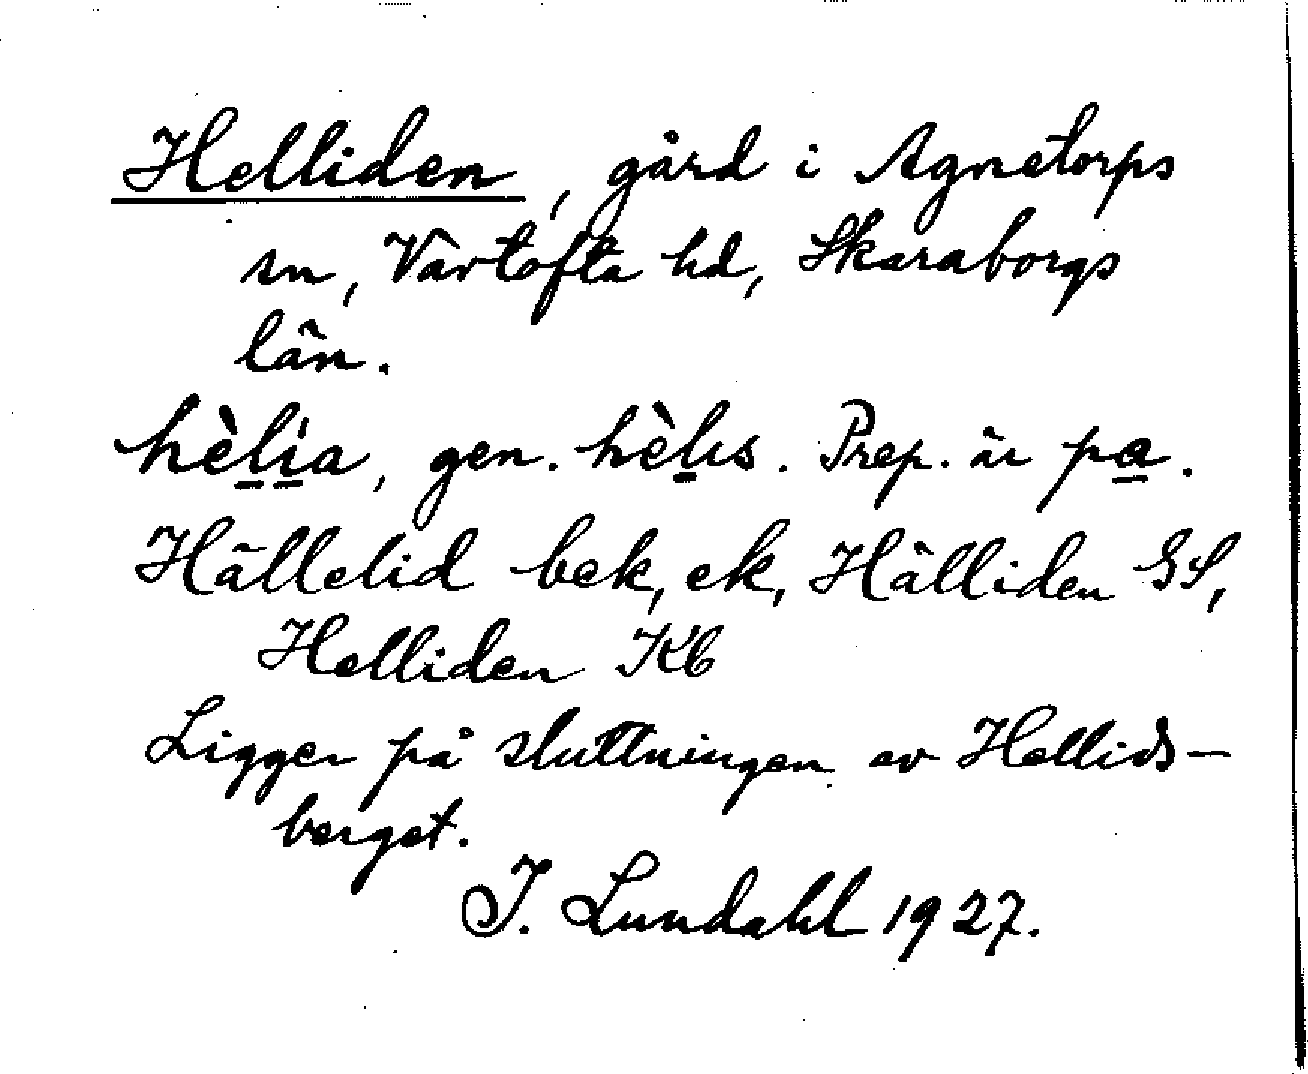 Helliden, gård i Agnetorps
sn, Vartofta hd, Skaraborgs
län.
hèlia, gen. hèlıs. Prep. är pa.
Hällelid bek, ek, Hälliden GS,
Helliden Kb
Ligger på sluttningen av Hellids-
berget.
I. Lundahl 1927.